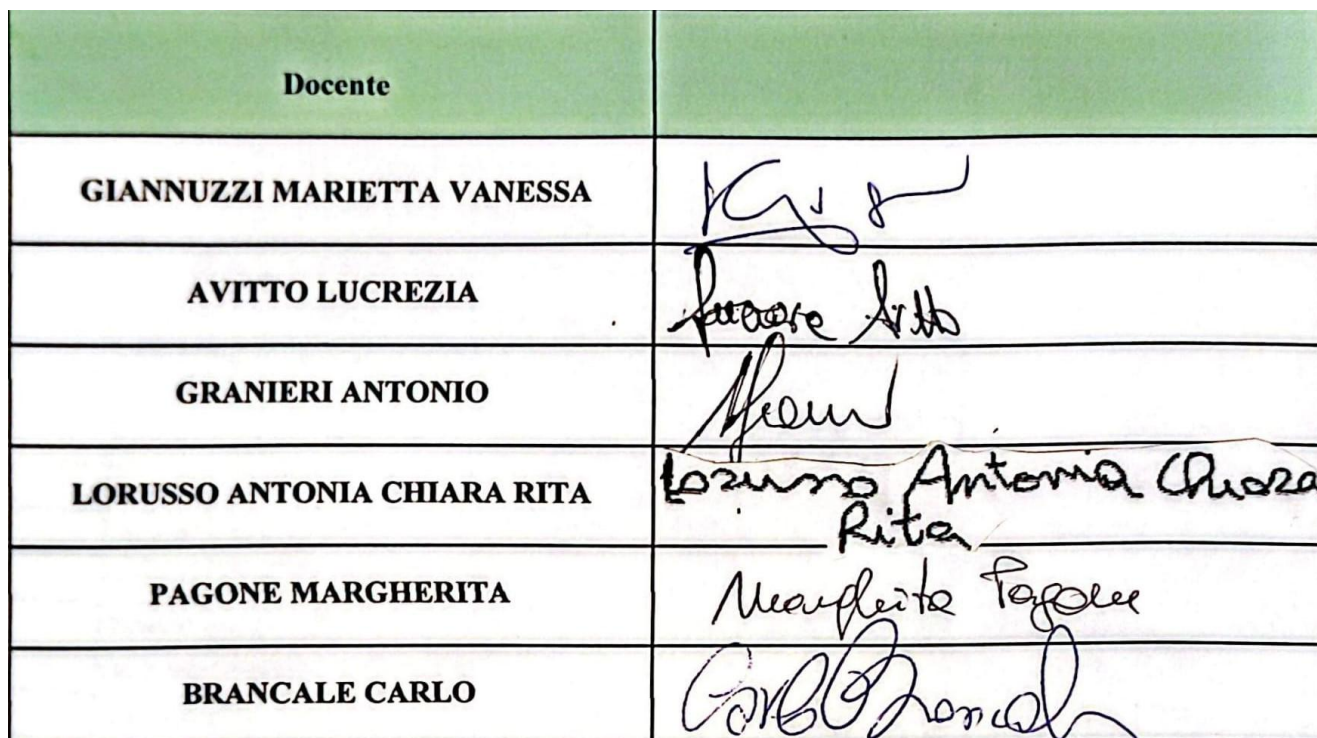 Docente
GIANNUZZI MARIETTA VANESSA
AVITTO LUCREZIA
GRANIERI ANTONIO
LORUSSO ANTONIA CHIARA RITA
Lorusso Antonia Chiara
Rita
PAGONE MARGHERITA
Margherita Pagone
BRANCALE CARLO
Carlo Brancale